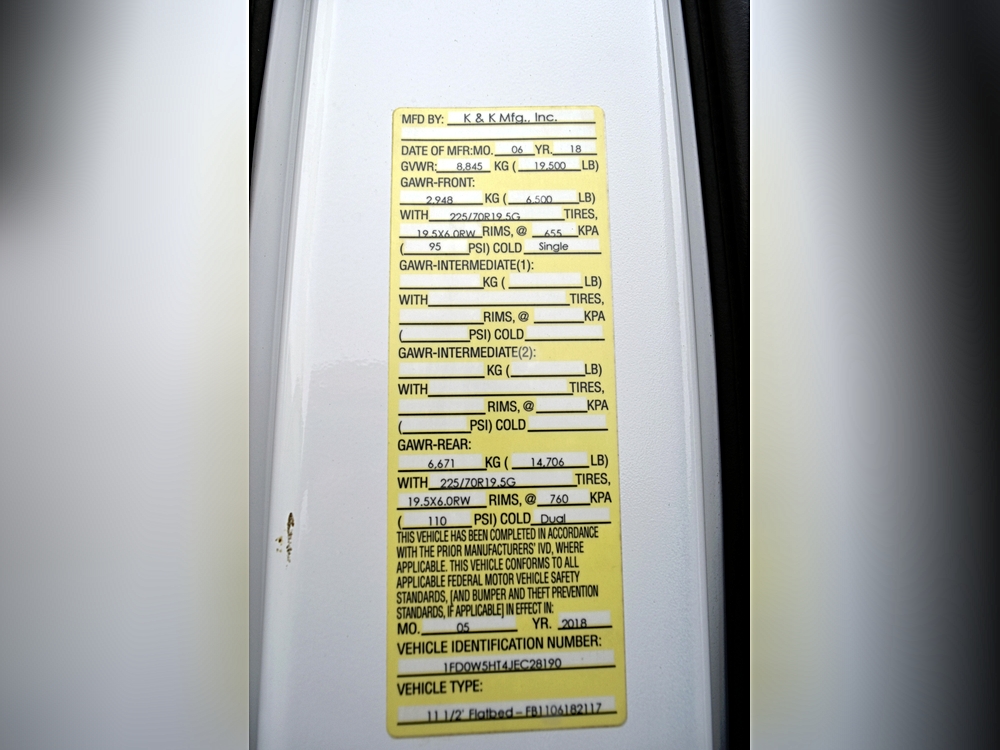 MFD BY: K & K Mfg., Inc.
DATE OF MFR:MO. 06 YR. 18
GVWR: 8,845 KG ( 19,500 LB)
GAWR-FRONT:
2,948 KG ( 6,500 LB)
WITH 225/70R19.5G TIRES,
19.5X6.0RW RIMS, @ 655 KPA
( 95 PSI) COLD Single
GAWR-INTERMEDIATE(1):
KG ( LB)
WITH TIRES,
RIMS, @ KPA
( PSI) COLD
GAWR-INTERMEDIATE(2):
KG ( LB)
WITH TIRES,
RIMS, @ KPA
( PSI) COLD
GAWR-REAR:
6,671 KG ( 14,706 LB)
WITH 225/70R19.5G TIRES,
19.5X6.0RW RIMS, @ 760 KPA
( 110 PSI) COLD Dual
THIS VEHICLE HAS BEEN COMPLETED IN ACCORDANCE
WITH THE PRIOR MANUFACTURERS' IVD, WHERE
APPLICABLE. THIS VEHICLE CONFORMS TO ALL
APPLICABLE FEDERAL MOTOR VEHICLE SAFETY
STANDARDS, [AND BUMPER AND THEFT PREVENTION
STANDARDS, IF APPLICABLE] IN EFFECT IN:
MO. 05 YR. 2018
VEHICLE IDENTIFICATION NUMBER:
1FD0W5HT4JEC28190
VEHICLE TYPE:
11 1/2' Flatbed – FB1106182117